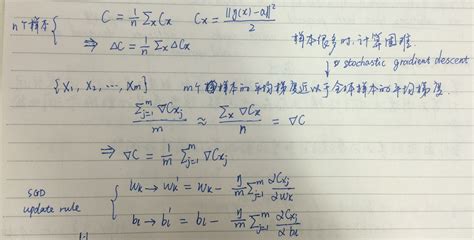 n个样本 { C = 1/n Σx Cx Cx = ||y(x)-a||² / 2
⇒ ΔC = 1/n Σx ΔCx 样本很多时, 计算困难
↓ stochastic gradient descent
{X1, X2, ..., Xm} m个样本的平均梯度近似于全体样本的平均梯度.
Σ_{j=1}^{m} ∇Cxj / m ≈ Σx ∇Cx / n = ∇C
⇒ ∇C = 1/m Σ_{j=1}^{m} ∇Cxj
SGD update rule { wk → wk' = wk - η/m Σ_{j=1}^{m} ∂Cxj / ∂wk
bl → bl' = bl - η/m Σ_{j=1}^{m} ∂Cxj / ∂bl